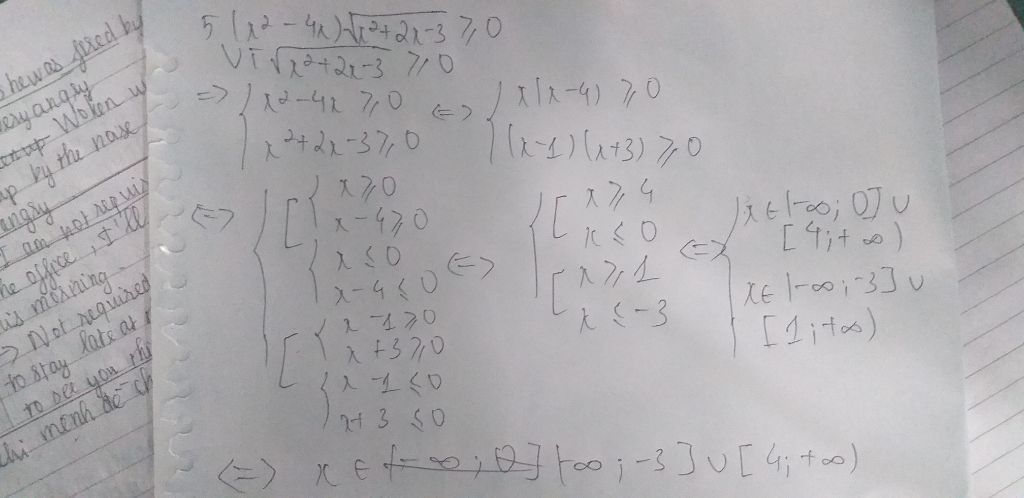 she was fired by
very angry
up Woken
up by the nose
angry
I am not requi
he office, I'll
is morning
=> Not required
to stay late at
to see you
chi mệnh đề ch
5 (x² - 4x)√x²+2x-3 ≥ 0
VT √x²+2x-3 ≥ 0
=> { x²-4x ≥ 0 <=> { x(x-4) ≥ 0
x²+2x-3 ≥ 0 (x-1)(x+3) ≥ 0
<=> { [ { x ≥ 0
x-4 ≥ 0
{ x ≤ 0
x-4 ≤ 0
[ { x-1 ≥ 0
x+3 ≥ 0
{ x-1 ≤ 0
x+3 ≤ 0
<=> { [ x ≥ 4
x ≤ 0
[ x ≥ 1
x ≤ -3
<=> { x ∈ (-∞; 0] ∪
[4; +∞)
x ∈ (-∞; -3] ∪
[1; +∞)
<=> x ∈ (-∞; 0] (-∞; -3] ∪ [4; +∞)